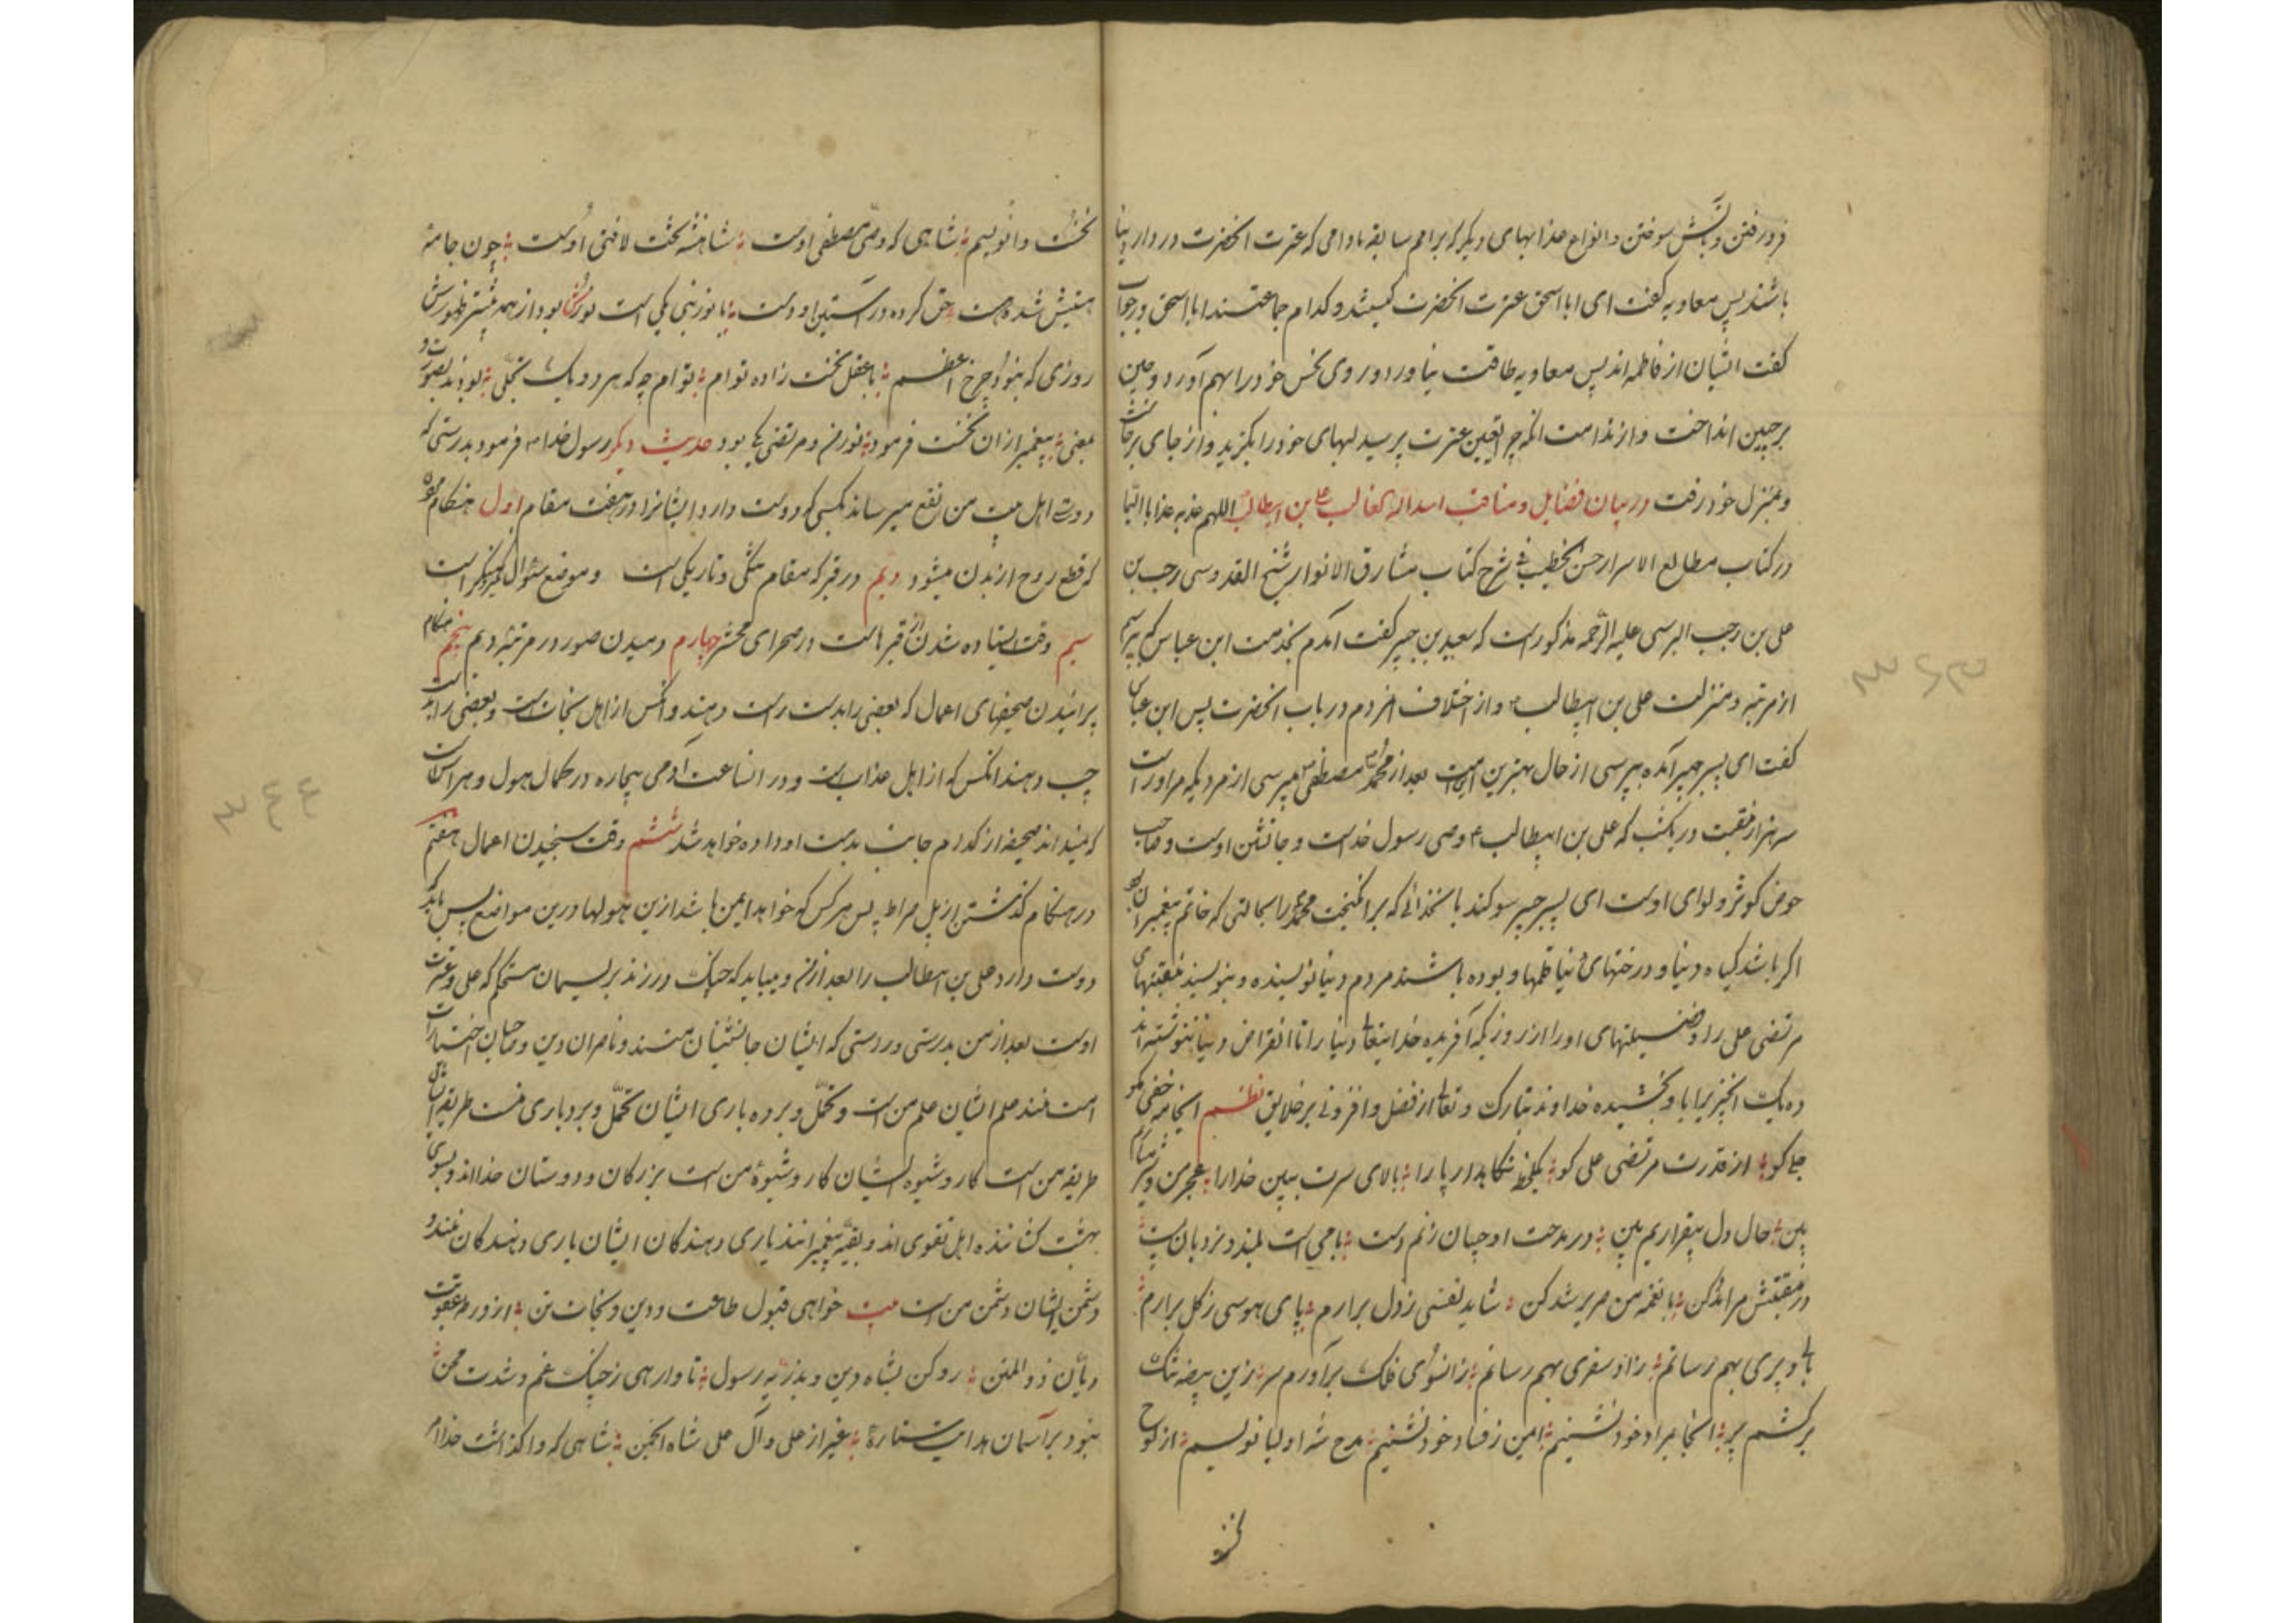 فرو رفتن و بآتش سوختن و انواع عذابهای دیگر که بر امم سابقه مادامی که عترت آنحضرت در دار دنیا
باشند پس معاویه گفت ای ابا اسحق عترت آنحضرت کیستند و کدام جماعتند ابا اسحق در جواب
گفت ایشان از فاطمه اند پس معاویه طاقت نیاورد و روی نحس خود را بهم آورد و چین
بر جبین انداخت و از ندامت آنکه چرا تعین عترت پرسید لبهای خود را بگزید و از جای برخاست
و بمنزل خود رفت در بیان فضایل و مناقب اسد الله الغالب علی بن ابیطالب اللهم عذبه عذابا الیما
در کتاب مطالع الاسرار حسن الخطیب فی شرح کتاب مشارق الانوار شیخ القدوسی رجب بن
علی بن رجب البرسی علیه الرحمه مذکور است که سعید بن جبیر گفت آمدم بخدمت ابن عباس که بپرسم
از مرتبه و منزلت علی بن ابیطالب ع و از اختلاف مردم در باب آنحضرت پس ابن عباس
گفت ای پسر جبیر آمده بپرسی از حال بهترین این امت بعد از محمد مصطفی ص میپرسی از مردیکه مر او راست
سه هزار منقبت در یکشب که علی بن ابیطالب ع وصی رسول خداست و جانشین اوست و صاحب
حوض کوثر و لوای اوست ای پسر جبیر سوکند با نخدائی که برانکیخت محمد را بحالتی که خاتم پیغمبران بود
اکر باشد کیاه دنیا و درختهای دنیا قلمها و بوده باشند مردم دنیا نویسنده و بنویسند منقبتهای
مرتضی علی را و فضیلتهای او را از روزیکه آفریده خدایتعالی دنیا را تا انقراض دنیا ننوشته اند
ده یک آنچیزیرا باو بخشیده خداوند تبارک و تعالی از فضل و افزونی بر خلایق نظم اینجا نه خفی کو
جلی کو از قدرت مرتضی علی کو یکلحظه نکاهدار پا را بالای سرت ببین خدا را عجز من و شرمساریم
بین حال دل بیقراریم بین در مدحت او چسان زنم دست بامی است بلند و نردبان پست
در منقبتش مرا مدد کن با نغمه من مرید شد کن شاید نفسی ز دل برارم پای هوسی ز کل برارم
بال و پری بهم رسانم زاد سفری بهم رسانم زانسوی فلک برآورم سر زین بیضه تنک
برکشم پر آنجا بمراد خود نشینم ایمن ز فساد خود نشینم مدح شه اولیا نویسم از لوح
نخست وا نویسم شاهی که وصی مصطفی اوست شاهنشه تخت لافتی اوست چون جامه
هستیش شده هست حق کرده در آستین او دست با نور نبی یکی است نورش بود از همه پیشتر ظهورش
روزی که نبود چرخ اعظم با عقل نخست زاده توام توام چه که هر دو یک تجلی بودند بصورت و
بمعنی پیغمبر از آن نخست فرمود نور من و مرتضی یکی بود حدیث دیگر رسول خدا ص فرمود بدرستی که
دوستی اهل بیت من نفع میرساند بکسی که دوست دارد ایشانرا در هفت مقام اول هنکام
که قطع روح از بدن میشود دیم در قبر که مقام تنکی و تاریکی است و موضع سؤال نکیر و منکر است
سیم وقت ایستاده شدن از قبرهاست در صحرای محشر چهارم دمیدن صور در مرتبه دیم پنجم هنکام
پرانیدن صحیفهای اعمال که بعضی را بدست راست دهند و آنکس از اهل نجاتست و بعضی را بدست
چپ دهند آنکس که از اهل عذابست و در انساعت آدمی بیچاره در کمال هول و هراس است
که نمیداند صحیفه از کدام جانب بدست او داده خواهد شد ششم وقت سنجیدن اعمال هفتم
در هنکام گذشتن از پل صراط پس هر کس که خواهد ایمن باشد ازین هولها و درین مواضع پس باید که
دوست دارد علی بن ابیطالب را بعد از من و میباید که چنک در زند بریسمان مستحکم که علی و عترت
اوست بعد از من بدرستی و راستی که ایشان جانشینان منند و ناصران دین و صاحبان اختیار
امت منند علم ایشان علم من است و تحمل و بردباری ایشان تحمل و بردباری منست طریقه ایشان
طریقه من است کار و شیوه ایشان کار و شیوه من است بزرکان و دوستان خدا اند و بسوی
بهشت کشانند اهل تقوی اند و بقیه پیغمبرانند یاری دهندکان ایشان یاری دهندکان منند و
دشمن ایشان دشمن من است بیت خواهی قبول طاعت و دین و نجات تن از ورطه عقوبت
دیان ذو المنن رو کن بشاه دین و بذریه رسول تا وارهی ز چنک غم و شدت محن
نبود بر آسمان هدایت ستاره غیر از علی و آل علی شاه انجمن شاهی که وا کذاشت خدا